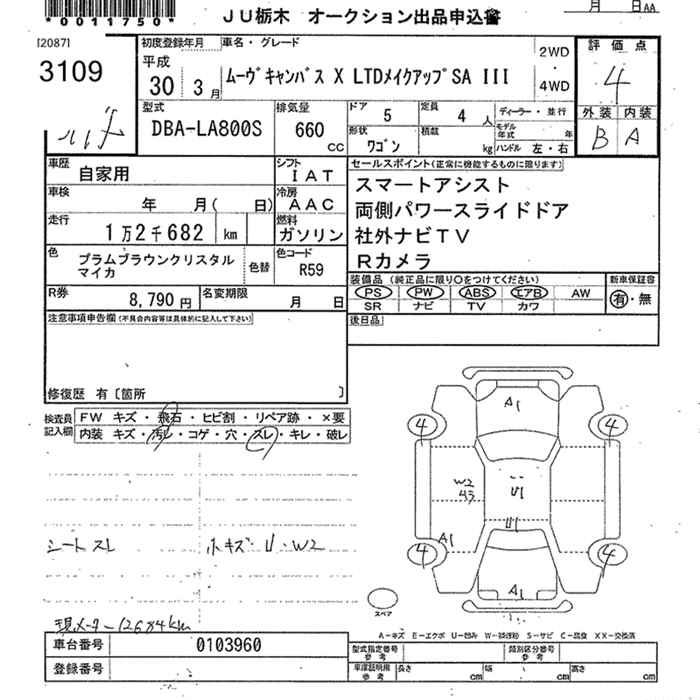 *0011750*
JU栃木 オークション出品申込書
月 日AA
[2087]
3109
初度登録年月
平成
30年3月
車名・グレード
ムーヴキャンバス X LTDメイクアップSA III
2WD
・
4WD
評価点
4
外装 内装
B A
型式
DBA-LA800S
排気量
660
cc
ドア 5
定員 4人
形状 ワゴン
積載 kg
ディーラー・並行
モデル年式 年
ハンドル 左・右
車歴 自家用
シフト IAT
車検 年 月( 日)
冷房 AAC
走行 1万2千682 km
燃料 ガソリン
色 プラムブラウンクリスタルマイカ
色替
色コード R59
R券 8,790円
名変期限 月 日
セールスポイント(正常に機能するものに限ります)
スマートアシスト
両側パワースライドドア
社外ナビTV
Rカメラ
装備品(純正品に限り○をつけてください)
PS PW ABS エアB AW
SR ナビ TV カワ
新車保証書
有・無
後日品
注意事項申告欄(不具合内容等は具体的に記入して下さい)
修復歴 有〔箇所 〕
検査員記入欄
FW キズ・飛石・ヒビ割・リペア跡・×要
内装 キズ・汚レ・コゲ・穴・スレ・キレ・破レ
シートスレ
小キズ U・W2
現メーター12684km
A1
4
4
W2
43
U1
U1
A1
4
4
A1
スペア
A-キズ E-エクボ U-凹み W-補修跡 S-サビ C-腐食 XX-交換済
車台番号 0103960
登録番号
型式指定番号 参考
類別区分番号 参考
車庫証明用 参考
長さ cm
幅 cm
高さ cm